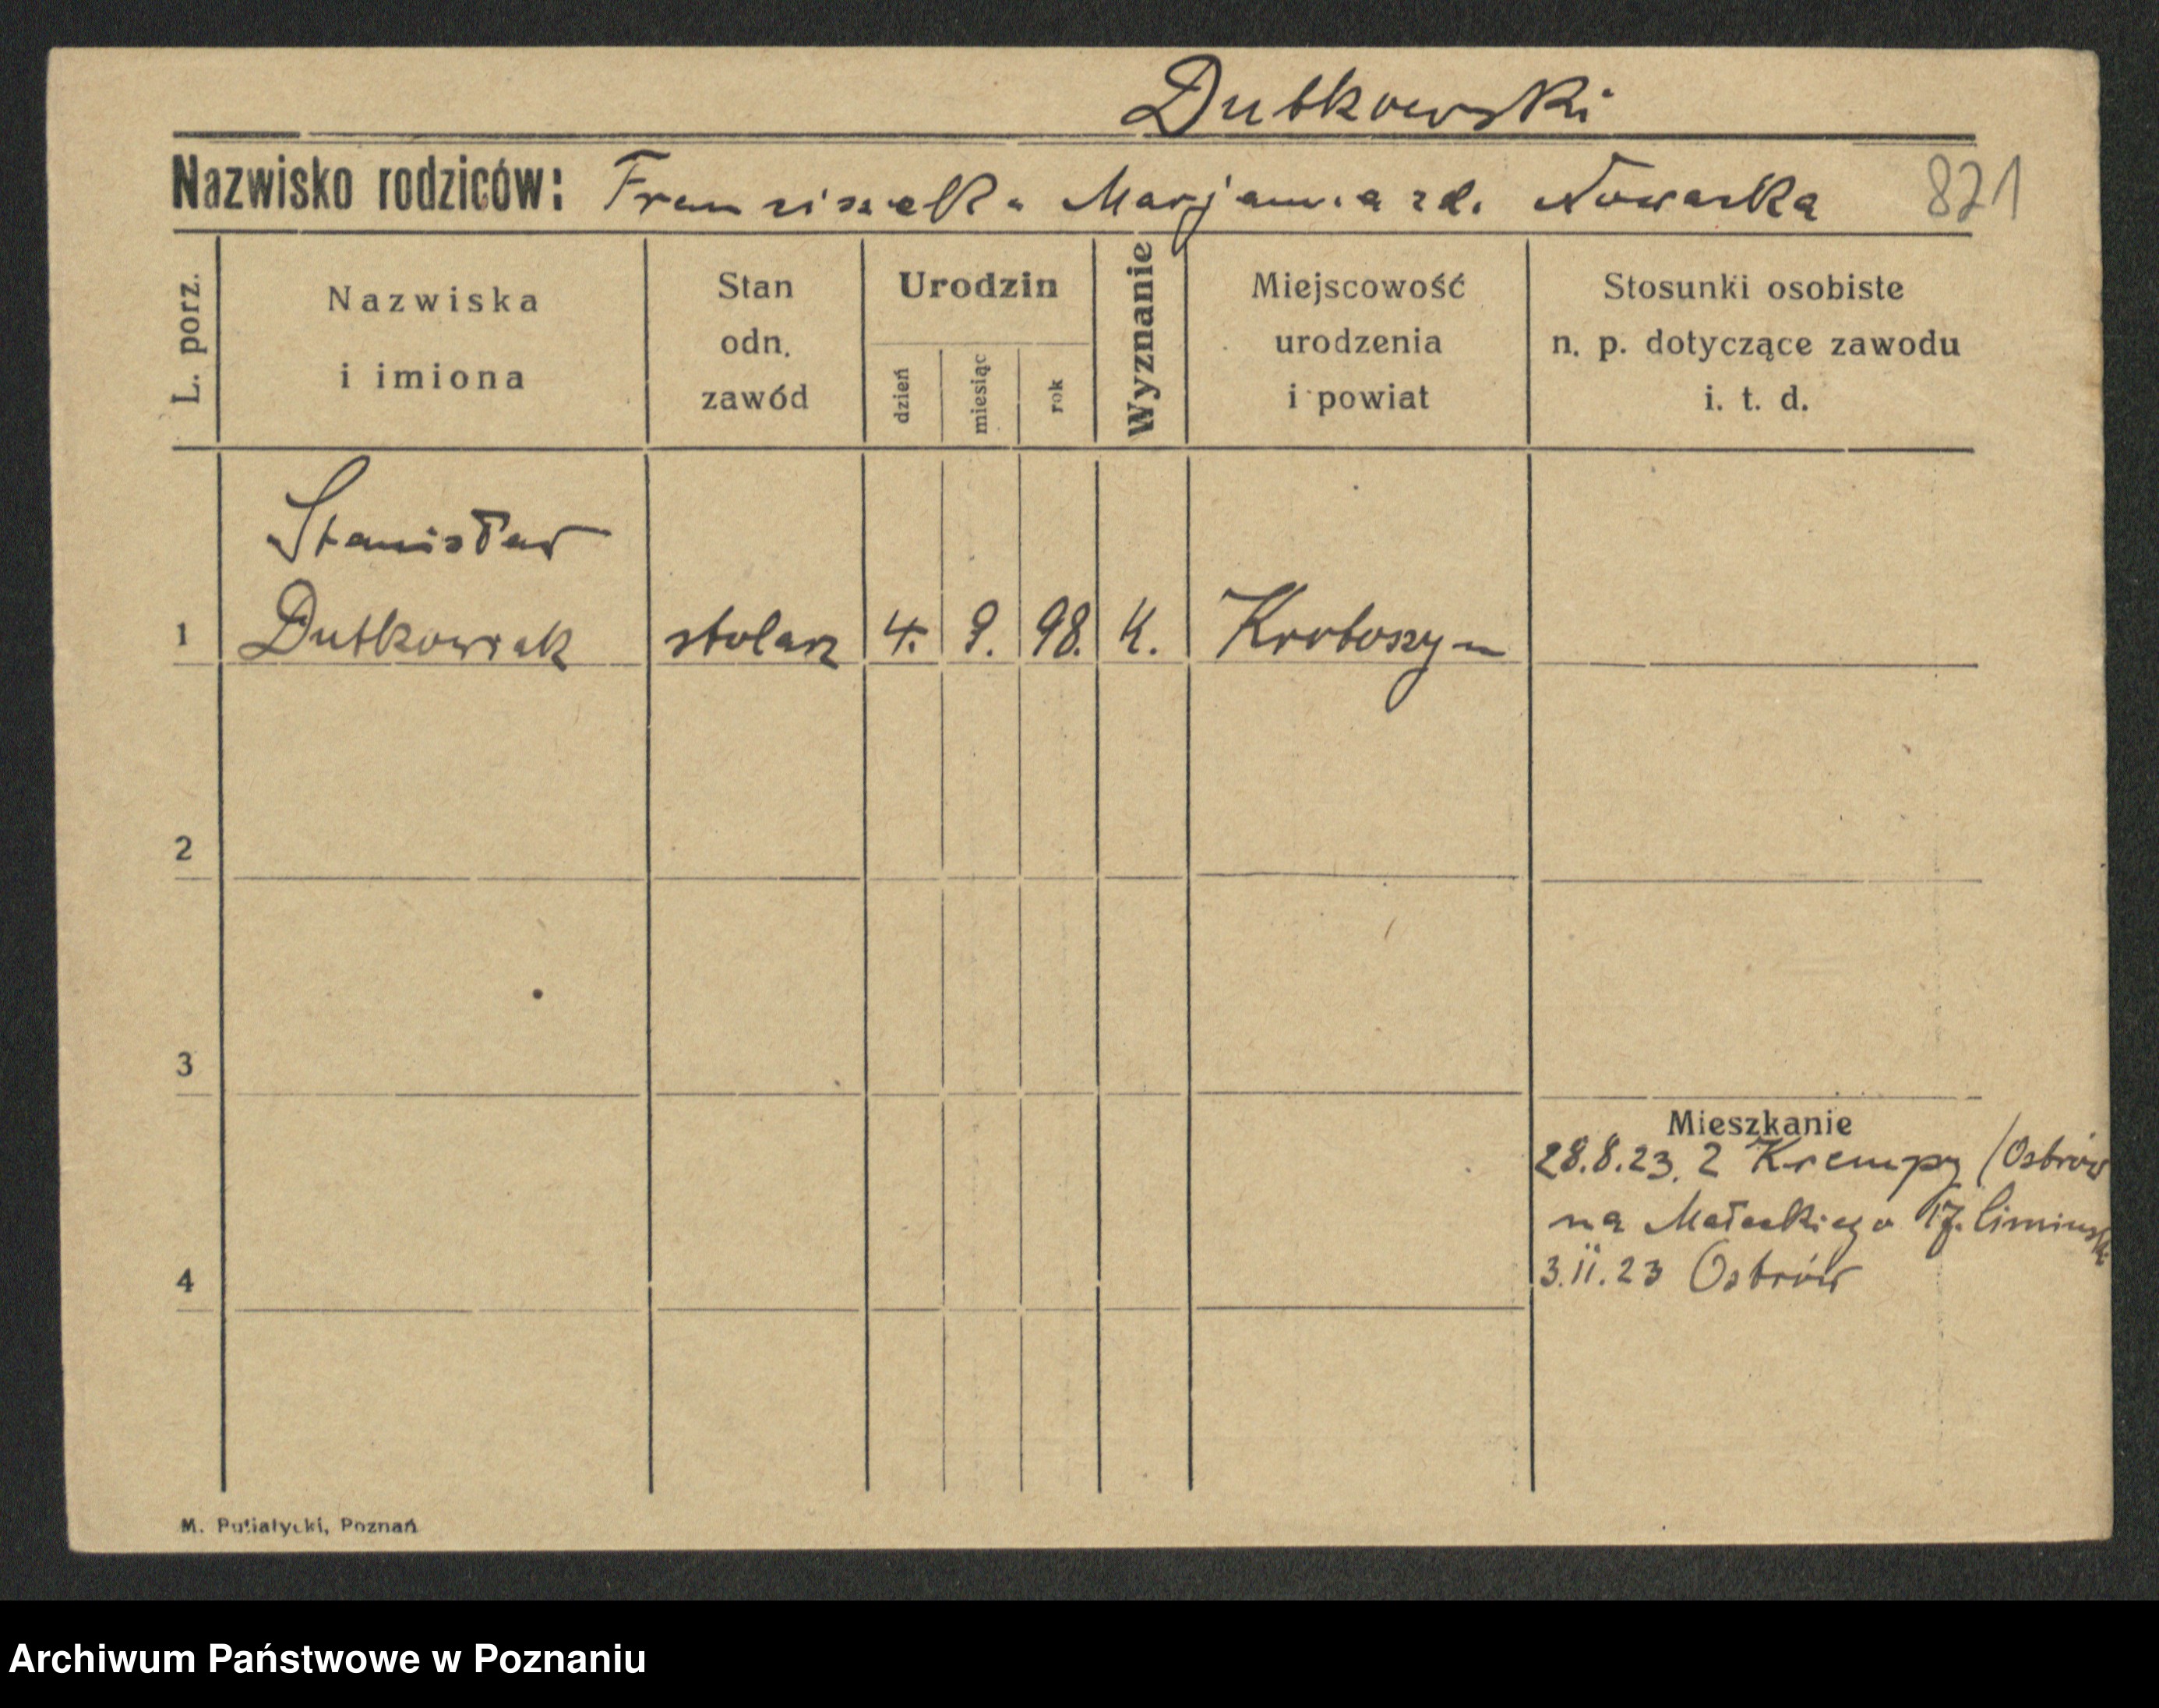 Dutkowski
Nazwisko rodziców: Franciszek a Marjanna zd. Nowacka 821
L. porz.
Nazwiska
i imiona
Stan
odn.
zawód
Urodzin
dzień
miesiąc
rok
Wyznanie
Miejscowość
urodzenia
i powiat
Stosunki osobiste
n. p. dotyczące zawodu
i. t. d.
Stanisław
1 Dutkowiak stolarz 4. 9. 98. K. Krotoszyn
2
3
Mieszkanie
28.8.23. z Krempy /Ostrów
na Małeckiego 17.
3.11.23 Ostrów
4
M. Putiatycki, Poznań
Archiwum Państwowe w Poznaniu